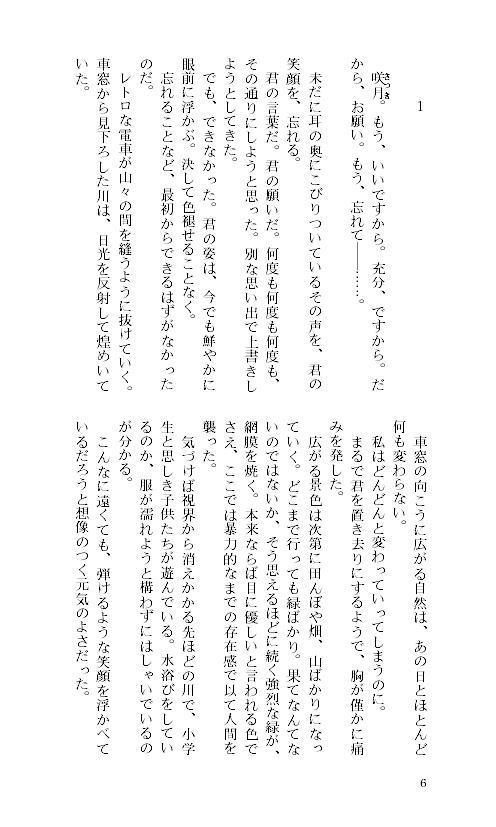 1
咲月。もう、いいですから。充分、ですから。だ
から、お願い。もう、忘れて――……。
未だに耳の奥にこびりついているその声を、君の
笑顔を、忘れる。
君の言葉だ。君の願いだ。何度も何度も何度も、
その通りにしようと思った。別な思い出で上書きし
ようとしてきた。
でも、できなかった。君の姿は、今でも鮮やかに
眼前に浮かぶ。決して色褪せることなく。
忘れることなど、最初からできるはずがなかった
のだ。
レトロな電車が山々の間を縫うように抜けていく。
車窓から見下ろした川は、日光を反射して煌めいて
いた。
車窓の向こうに広がる自然は、あの日とほとんど
何も変わらない。
私はどんどんと変わっていってしまうのに。
まるで君を置き去りにするようで、胸が僅かに痛
みを発した。
広がる景色は次第に田んぼや畑、山ばかりになっ
ていく。どこまで行っても緑ばかり。果てなんてな
いのではないか、そう思えるほどに続く強烈な緑が、
網膜を焼く。本来ならば目に優しいと言われる色で
さえ、ここでは暴力的なまでの存在感で以て人間を
襲った。
気づけば視界から消えかかる先ほどの川で、小学
生と思しき子供たちが遊んでいる。水浴びをしてい
るのか、服が濡れようと構わずにはしゃいでいるの
が分かる。
こんなに遠くても、弾けるような笑顔を浮かべて
いるだろうと想像のつく元気のよさだった。
6